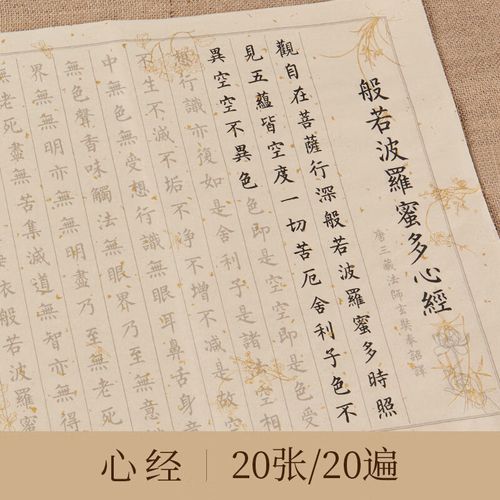 般若波羅蜜多心經
唐三藏法師玄奘奉詔譯
觀自在菩薩行深般若波羅蜜多時照
見五蘊皆空度一切苦厄舍利子色不
異空空不異色色即是空空即是色受
想行識亦復如是舍利子是諸法空相
不生不滅不垢不淨不增不減是故空
中無色無受想行識無眼耳鼻舌身
無色聲香味觸法無眼界乃至無意
界無無明亦無無明盡乃至無老死
無老死盡無苦集滅道無智亦無得
般若波羅蜜
心经 | 20张/20遍